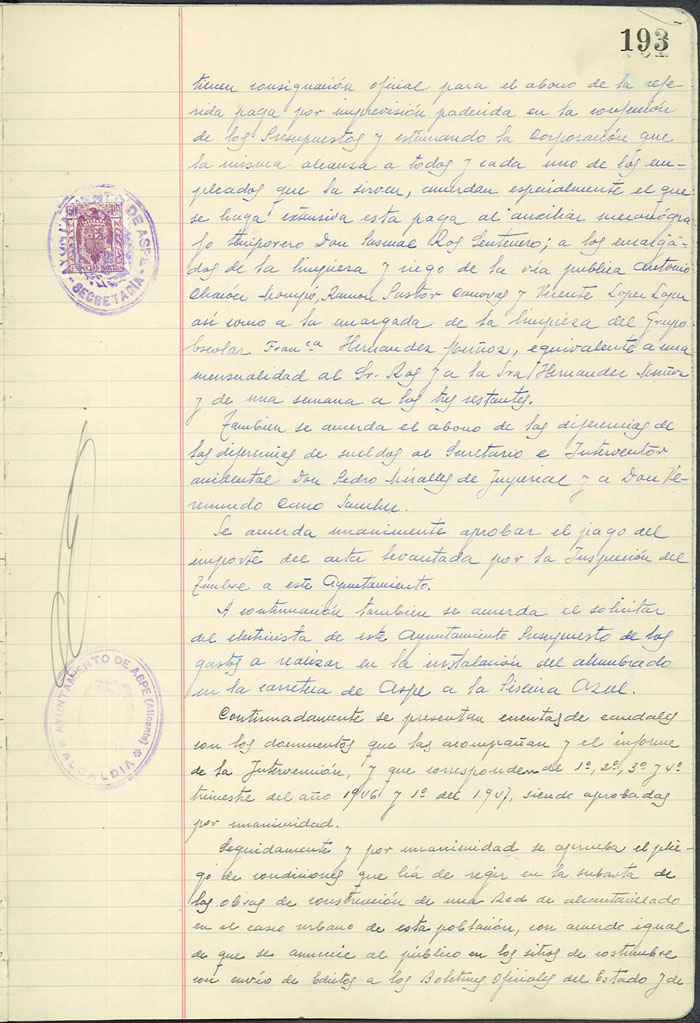 193
tienen consignación oficial para el abono de la refe-
rida paga por imprevisión padecida en la confección
de los Presupuestos y estimando la Corporación que
la misma alcanza a todos y cada uno de los em-
pleados que la sirven, acuerdan especialmente el que
se haga extensiva esta paga al auxiliar mecanógra-
fo temporero Don Pascual Ros Senteuero; a los encarga-
dos de la limpieza y riego de la via publica Antonio
Chacón Monpó, Ramon Pastor Canovas y Vicente Lopez Lopez
asi como a la encargada de la limpieza del Grupo
Escolar Fran.ca Hernandez Muñoz, equivalente a una
mensualidad al Sr. Ros y a la Sra. Hernandez Muñoz
y de una semana a los tres restantes.
Tambien se acuerda el abono de las diferencias de
las diferencias de sueldos al Secretario e Interventor
accidental Don Pedro Miralles de Imperial y a Don Ve-
remundo Cano
Se acuerda unanimente aprobar el pago del
importe del acta levantada por la Inspección del
Timbre a este Ayuntamiento.
A continuación tambien se acuerda el solicitar
del electricista de este Ayuntamiento Presupuesto de los
gastos a realizar en la instalación del alumbrado
en la carretera de Aspe a la Piscina Azul.
Continuadamente se presentan cuentas de caudales
con los documentos que las acompañan y el informe
de la Intervención, y que corresponden al 1º, 2º, 3º y 4º
trimestre del año 1946 y 1º del 1.947, siendo aprobadas
por unanimidad.
Seguidamente y por unanimidad se aprueba el plie-
go de condiciones que há de regir en la subasta de
las obras de construcción de una Red de alcantarillado
en el casco urbano de esta población, con acuerdo igual
de que se anuncie al público en los sitios de costumbre
con envío de Edictos a los Boletines Oficiales del Estado y de
AYUNTAMIENTO DE ASPE
- SECRETARÍA -
AYUNTAMIENTO DE ASPE (Alicante)
* ALCALDIA *